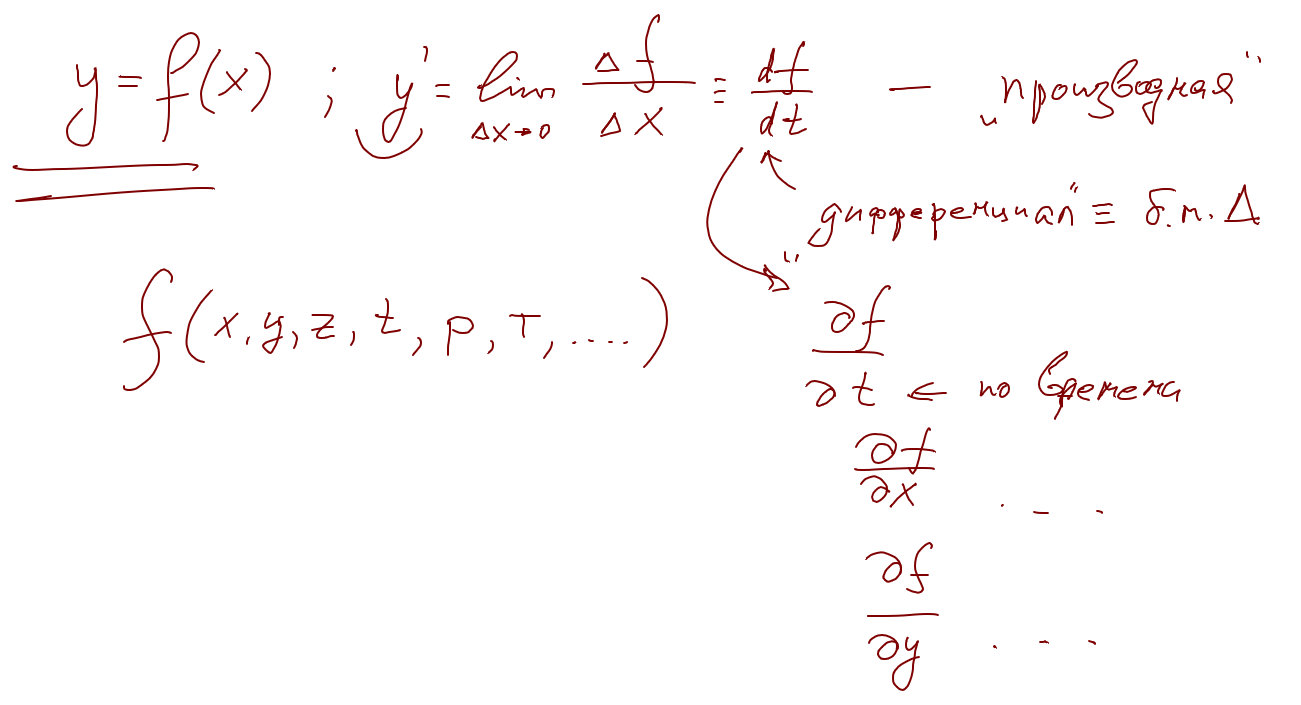 y = f(x) ; y' = lim Δx→0 Δf/Δx ≡ df/dt — „производная“
„дифференциал“ ≡ б.м. Δ
f(x, y, z, t, p, T, ....) ∂f/∂t ← по времени
∂f/∂x . – .
∂f/∂y . – .